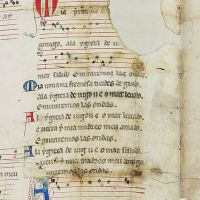 amigo, ala ygreia de u
mar salido E miraremos las ondas.
Mia irmana fremosa treides de grado.
ala ygreia de uigo u e o mar leuado.
E miraremos las ondas.
A la ygreia de uigo u e o mar leuado.
e uerra y mia madre e meu amado.
E miraremos las ondas.
A la ygreia de uigo u e o mar salido.
e uerra y mia madre e meu amigo.
E miraremos las ondas.